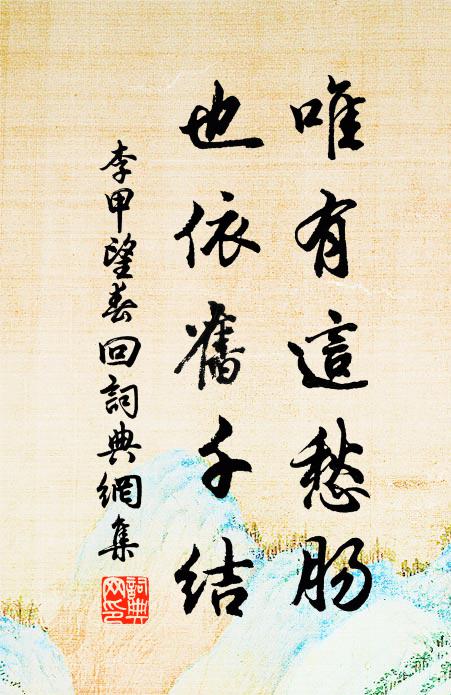 唯有這愁肠
也依舊千结
李甲望春回詞典網集
詞典网印